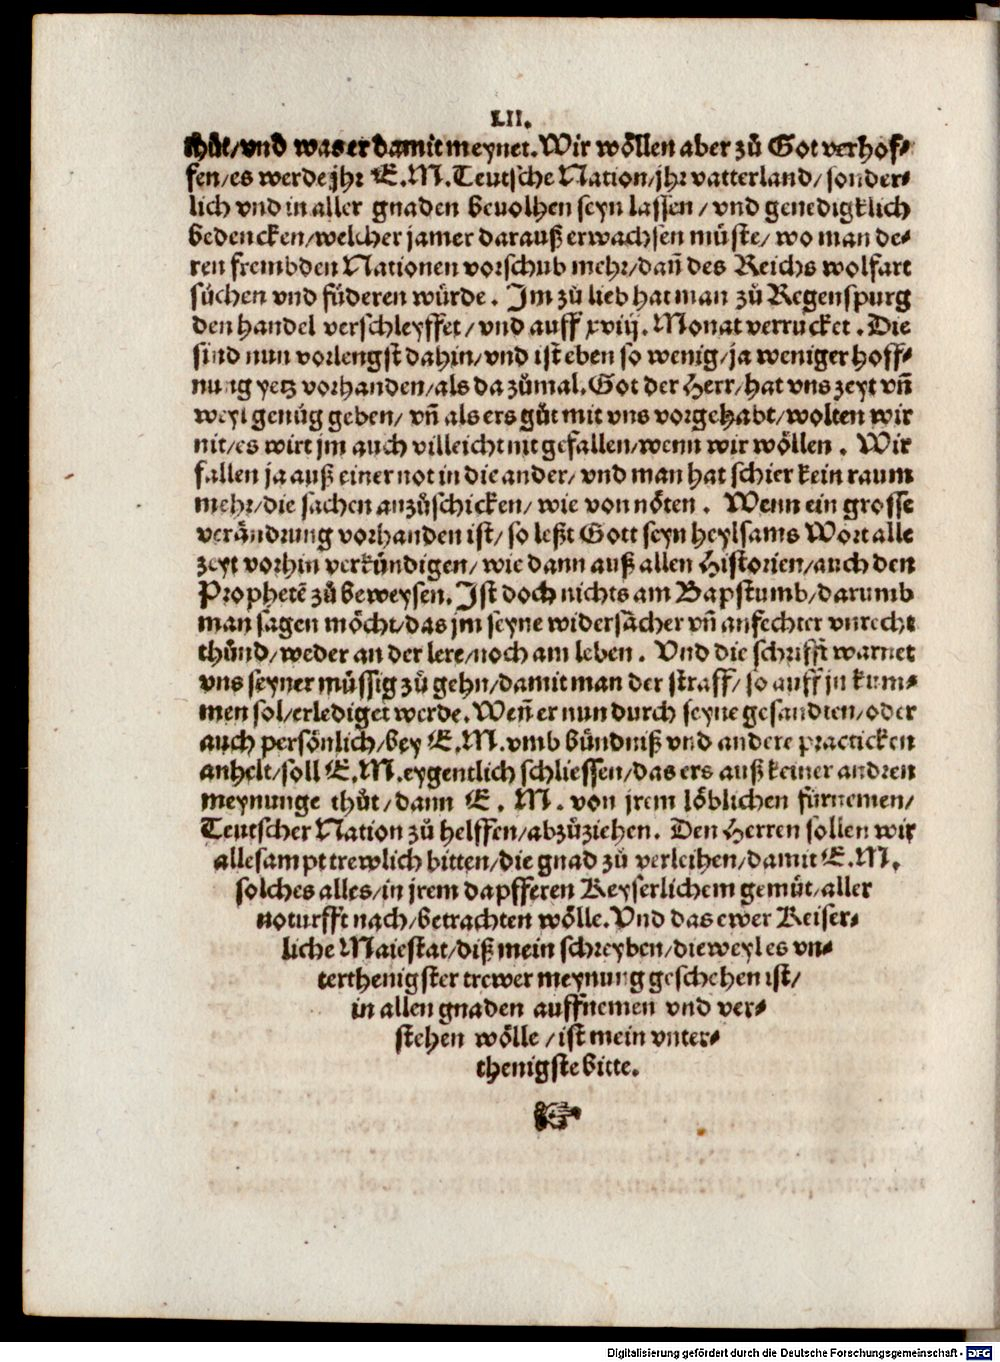 LII.
thůt/vnd was er damit meynet. Wir wöllen aber zů Got verhof⸗
fen/es werde jhr E.M. Teutsche Nation/jhr vatterland/ sonder⸗
lich vnd in aller gnaden beuolhen seyn lassen / vnd genedigklich
bedencken/welcher jamer darauß erwachsen müste/ wo man de⸗
ren frembden Nationen vorschub mehr/dañ des Reichs wolfart
sůchen vnd füderen würde. Im zů lieb hat man zů Regenspurg
den handel verschleyffet/ vnd auff xviij. Monat verrucket. Die
sind nun vorlengst dahin/vnd ist eben so wenig/ja weniger hoff⸗
nung yetz vorhanden/als dazůmal. Got der Herr/hat vns zeyt vñ
weyl genůg geben/ vñ als ers gůt mit vns vorgehabt/wolten wir
nit/es wirt jm auch villeicht nit gefallen/wenn wir wöllen . Wir
fallen ja auß einer not in die ander/ vnd man hat schier kein raum
mehr/die sachen anzůschicken/ wie von nöten . Wenn ein grosse
verändrung vorhanden ist/ so leßt Gott seyn heylsams Wort alle
zeyt vorhin verkündigen/ wie dann auß allen Historien/auch den
Prophetẽ zů beweysen. Ist doch nichts am Bapstumb/darumb
man sagen möcht/das jm seyne widersächer vñ anfechter vnrecht
thůnd/weder an der lere/noch am leben . Vnd die schrifft warnet
vns seyner müssig zů gehn/damit man der straff/ so auff jn kum⸗
men sol/erlediget werde. Weñ er nun durch seyne gesandten/oder
auch persönlich/bey E.M. vmb bündniß vnd andere practicken
anhelt/soll E.M. eygentlich schliessen/das ers auß keiner andren
meynunge thůt/dann E. M. von jrem löblichen fürnemen/
Teutscher Nation zů helffen/abzůziehen. Den Herren sollen wir
allesampt trewlich bitten/die gnad zů verleihen/damit E.M.
solches alles/in jrem dapfferen Keyserlichem gemüt/aller
noturfft nach/betrachten wölle. Vnd das ewer Keiser⸗
liche Maiestat/diß mein schreyben/dieweyl es vn⸗
terthenigster trewer meynung geschehen ist/
in allen gnaden auffnemen vnd ver⸗
stehen wölle / ist mein vnter⸗
thenigste bitte.
Digitalisierung gefördert durch die Deutsche Forschungsgemeinschaft - DFG